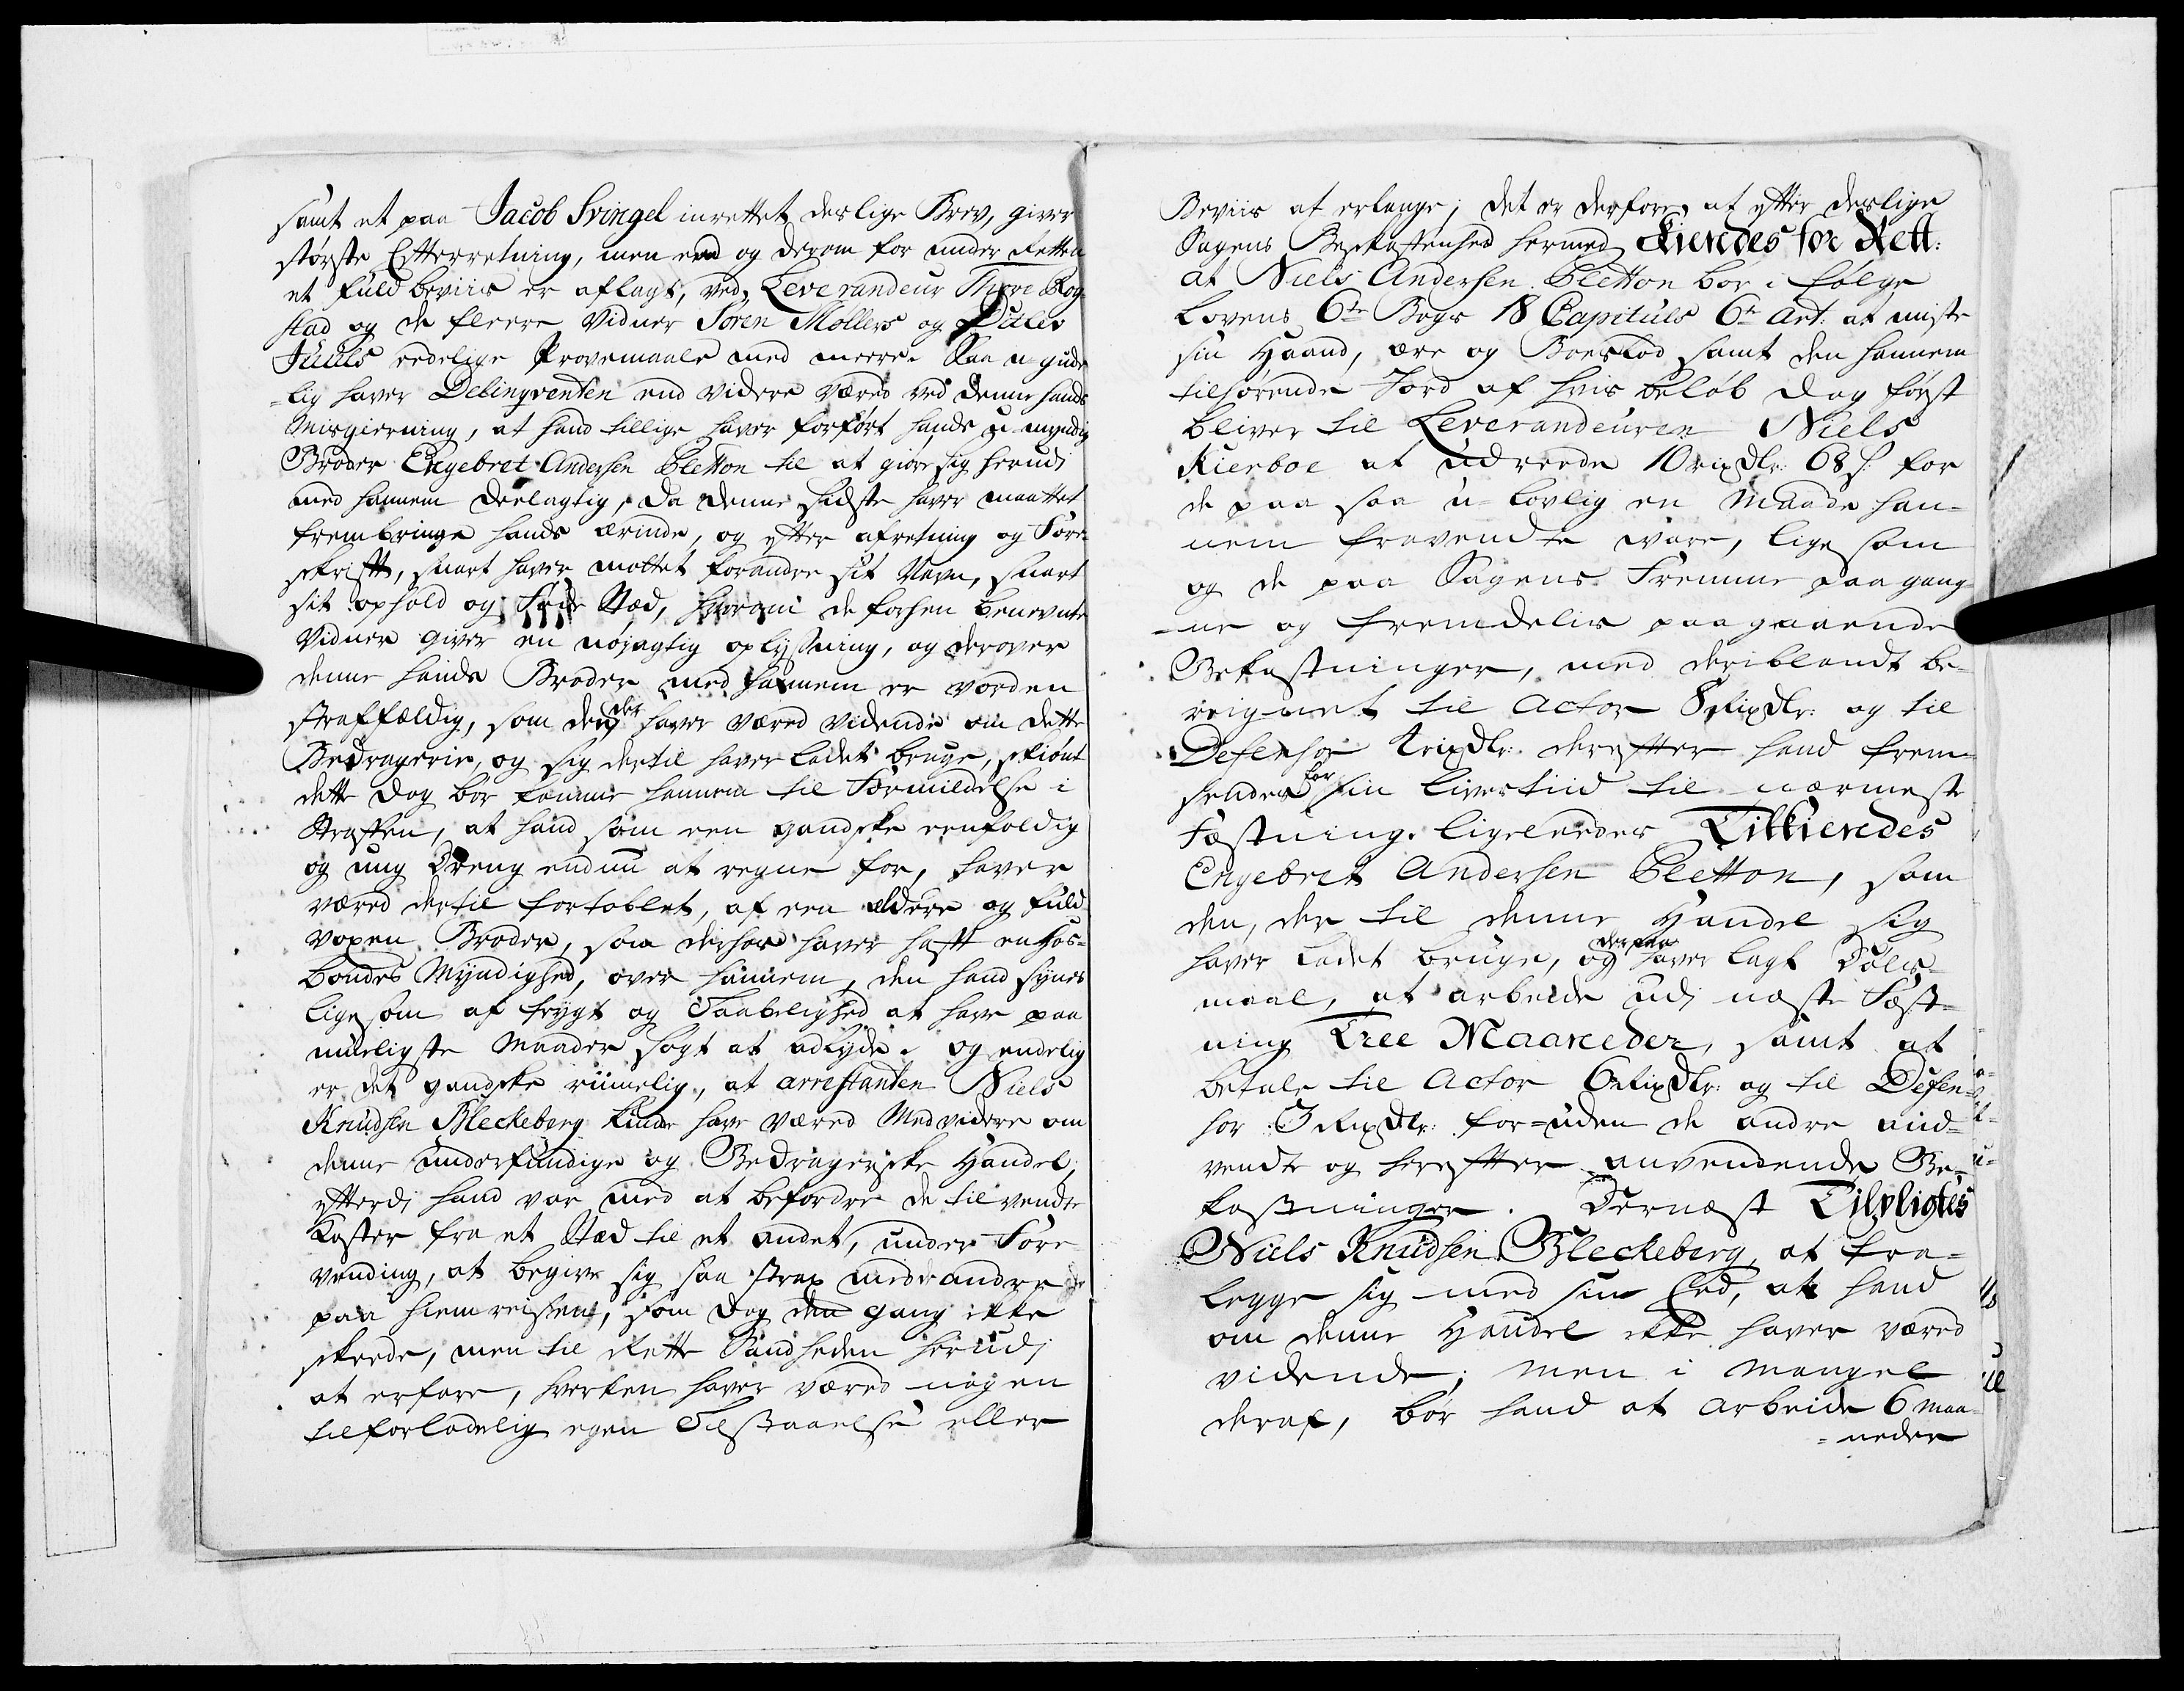 samt et paa Jacob Svingel inrettet deslige Brev, giver
største Efterretning, men end og derom for under Retten
et fuld beviis er aflagt, ved Leverandeur Thore Rog-
stad og de fleere Vidner Søren Møllers og Ditlev
Juuls eedelige Provemaale med meere. Saa u-gude
=lig haver Delinqventen end videre været ved denne hands
Misgierning, at hand tillige haver forført hands u-myndig
Broder Engebret Andersen Pletton til at giøre sig herudi
med hannem deelagtig, da denne sidste haver maattet
frembringe hands ærinde, og efter afretning og Fore-
skrift, snart haver mottet forandre sit Navn, snart
sit ophold og Føde Stæd, hvorom de forhen benevnte
Vidner giver en nøjagtig oplyssning, og derover
denne hands Broder med hannem er vorden
straffældig, som den der haver været vidende om dette
Bedragerie, og sig dertil haver ladet bruge, skiønt
dette dog bør komme hannem til Formildelse i
Straffen, at hand som een gandske eenfoldig
og ung Dreng endnu at regne for, haver
været dertil fortoblet, af een ældere og fuld-
voxen Broder, som derhos haver haft en Hos-
bondes Myndighed, over hannem, den hand synes
ligesom af frygt og Taabelighed at have paa
mueligste Maader søgt at adlyde. og endelig
er det gandske riimelig, at arrestanten Niels
Knudsen Bleckeberg kunde have været Medvidere om
denne underfundige og Bedragerske Handel,
efterdi hand var med at befordre de tilvendte
Koster fra et Stæd til et andet, under Fore-
vending, at begive sig saa strax med andre
paa hiemreisen, som dog den gang ikke
skeede, men til Rette Sandheden herudi
at erfare, hverken haver været nogen
tilforladelig egen Tilstaaelse eller
Beviis at erlange; det er derfore at efter deslige
Sagens Beskaffenhed hermed Kiendes for Rett:
at Niels Andersen Pletton bør i følge
Lovens 6te Bogs 18 Capituls 6te Art: at miste
sin Haand, ære og Boeslod samt den hannem
tilhørende Jord af hvis beløb dog først
bliver til Leverandeuren Niels
Kierboe at udreede 10 rixdlr: 68 s: for
de paa saa u-lovlig en Maade han-
nem fravendte vare, lige som
og de paa Sagens Fremme paagang-
-ne og fremdelis paagaaende
Bekostninger, med deriblandt be-
reignet til Actor 8 Rixdlr: og til
Defensor 4 rixdlr. derefter hand frem-
sendes for sin livstiid til nærmeste
Fæstning. ligeleedes Tilkiendes
Engebret Andersen Pletton, som
den, der til denne Handel sig
haver ladet bruge, og derpaa haver lagt Døls-
maal, at arbeide udi næste Fæst-
ning Tree Maaneder, samt at
betale til Actor 6 Rixdlr: og til Defen-
sor 3 Rixdlr: for=uden de andre and-
vendte og herefter anvendende Be-
kostninger. Dernæst Tilpligtes
Niels Knudsen Bleckeberg at fra-
legge sig med sin Eed, at hand
om denne Handel ikke haver været
vidende; Men i Mangel
deraf, bør hand at arbeide 6 Maa-
=neder